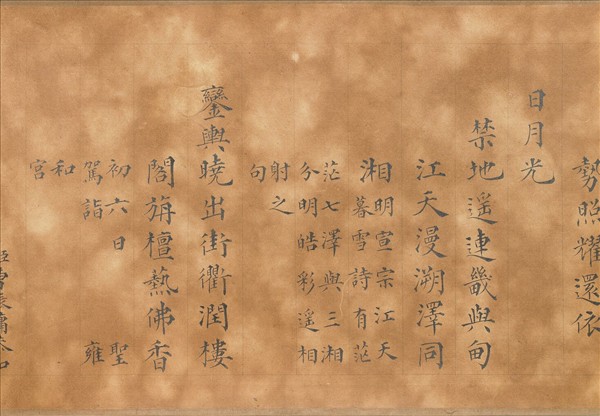 勢照耀還依
日月光
禁地遥連畿與甸
江天漫溯澤同
湘明宣宗江天
暮雪詩有茫
茫七澤與三湘
分明皓彩遥相
射之
句
鑾輿曉出街衢潤樓
閣旃檀爇佛香
初六日 聖
駕詣 雍
和
宮